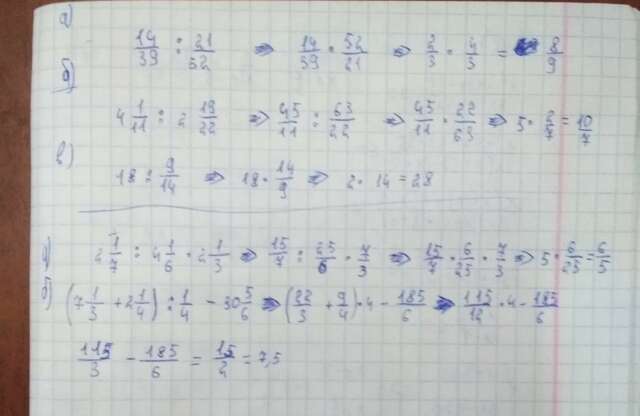 а)
14/39 : 21/52 ⇒ 14/39 · 52/21 ⇒ 2/3 · 4/3 = 8/9
б)
4 1/11 : 2 19/22 ⇒ 45/11 : 63/22 ⇒ 45/11 · 22/63 ⇒ 5 · 2/7 = 10/7
в)
18 : 9/14 ⇒ 18 · 14/9 ⇒ 2 · 14 = 28
а) 2 1/7 : 4 1/6 · 2 1/3 ⇒ 15/7 : 25/6 · 7/3 ⇒ 15/7 · 6/25 · 7/3 ⇒ 5 · 6/25 = 6/5
б) (7 1/3 + 2 1/4) : 1/4 - 30 5/6 ⇒ (22/3 + 9/4) · 4 - 185/6 ⇒ 115/12 · 4 - 185/6
115/3 - 185/6 = 15/2 = 7,5